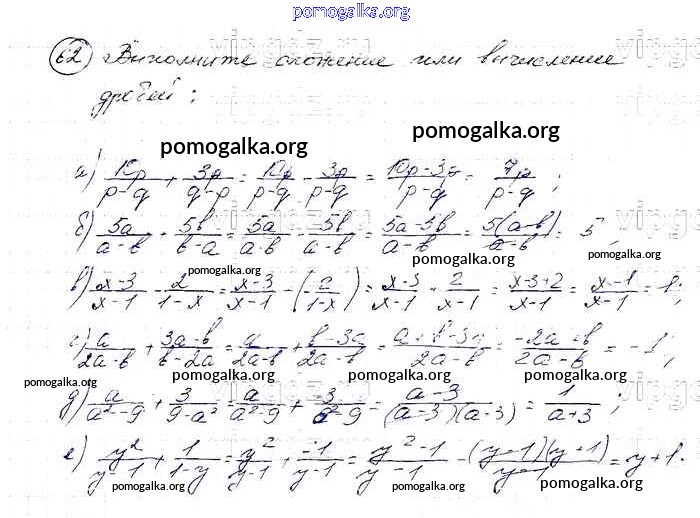 pomogalka.org
62 Выполните сложение или вычисление
дробей:
pomogalka.org pomogalka.org
а) 10p/(p-q) + 3p/(q-p) = 10p/(p-q) - 3p/(p-q) = (10p-3p)/(p-q) = 7p/(p-q)
б) 5a/(a-b) + 5b/(b-a) = 5a/(a-b) - 5b/(a-b) = (5a-5b)/(a-b) = 5(a-b)/(a-b) = 5;
pomogalka.org pomogalka.org
в) (x-3)/(x-1) - 2/(1-x) = (x-3)/(x-1) - (2/(1-x)) = (x-3)/(x-1) + 2/(x-1) = (x-3+2)/(x-1) = (x-1)/(x-1) = 1;
г) a/(2a-b) + (3a-b)/(b-2a) = a/(2a-b) + (b-3a)/(2a-b) = (a+b-3a)/(2a-b) = (-2a+b)/(2a-b) = -1;
pomogalka.org pomogalka.org pomogalka.org pomogalka.org
д) a/(a²-9) + 3/(9-a²) = a/(a²-9) + -3/(a²-9) = (a-3)/((a-3)(a-3)) = 1/(a+3);
е) y²/(y-1) + 1/(1-y) = y²/(y-1) + -1/(y-1) = (y²-1)/(y-1) = (y-1)(y+1)/(y-1) = y+1.
pomogalka.org pomogalka.org pomogalka.org